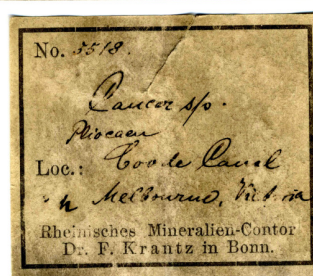 No. 5518.
Cancer sp.
Pliocaen
Loc.: Coode Canal
Melbourne, Victoria
Rheinisches Mineralien-Contor
Dr. F. Krantz in Bonn.